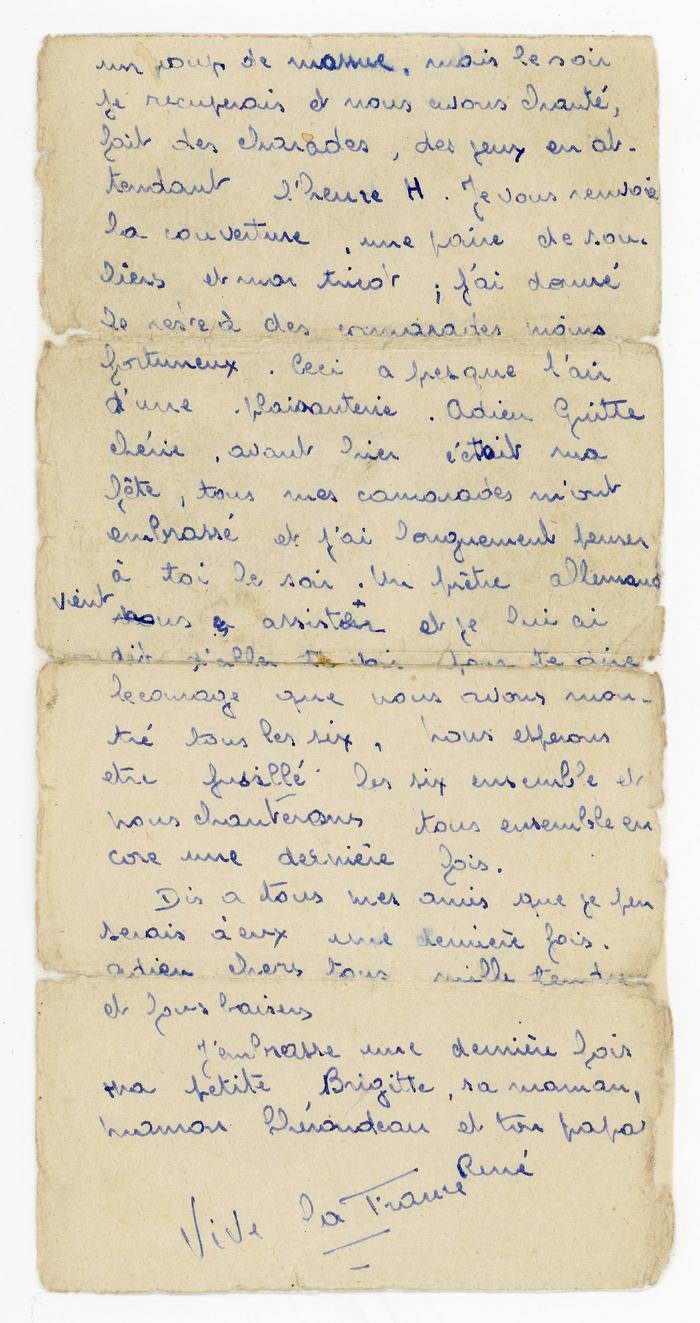 un coup de massue, mais le soir
je recuperais et nous avons chanté,
fait des charades, des jeux en at-
tendant l'heure H. Je vous renvoie
la couverture, une paire de sou-
liers et mon tricot ; j'ai donné
le reste à des camarades moins
fortuneux. Ceci a presque l'air
d'une plaisanterie. Adieu Guitte
chérie, avant hier c'était ma
fête, tous mes camarades m'ont
embrassé et j'ai longuement penser
à toi le soir. Un prêtre allemand
vient nous assister et je lui ai
dit d'aller te voir pour te dire
le courage que nous avons mon-
tré tous les six, nous esperons
etre fusillé les six ensemble et
nous chanterons tous ensemble en
core une dernière fois.
Dis a tous mes amis que je pen
serais à eux une dernière fois.
adieu chers tous mille tendres
et doux baisers
J'embrasse une dernière fois
ma petite Brigitte, sa maman,
maman et ton papa
René
Vive la France